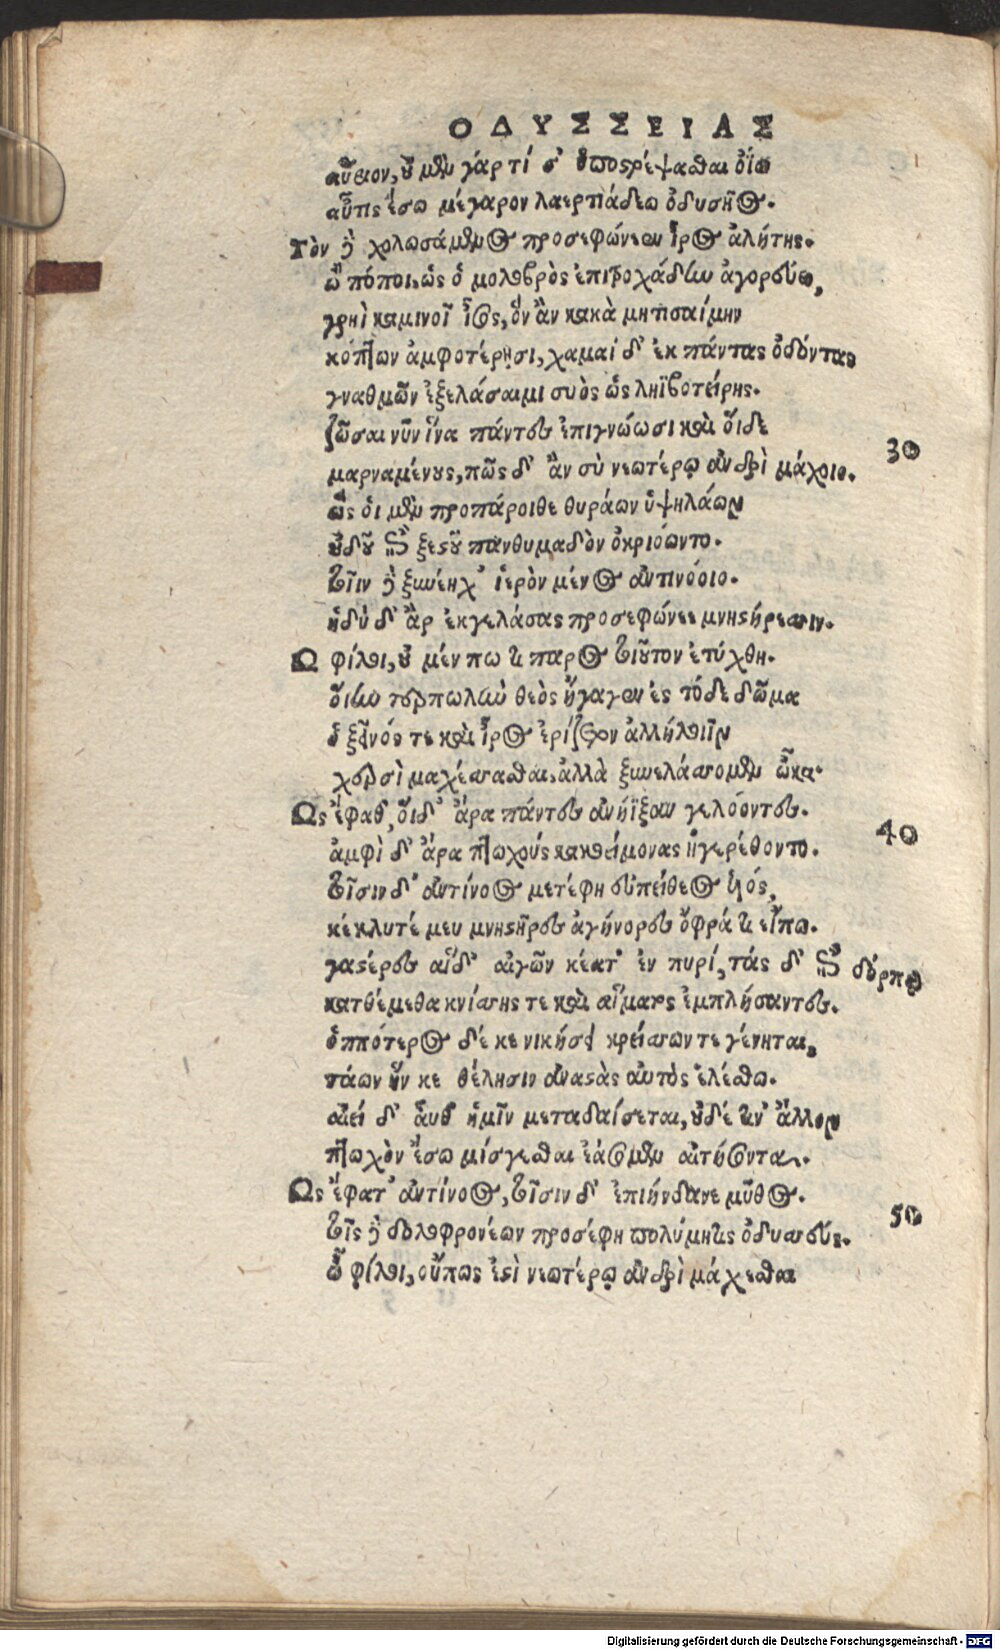 ΟΔΥΣΣΕΙΑΣ
αὔειον, οὐ μὲν γάρ τί σ' ὑποστρέψασθαι ὀΐω
αὖτις ἔσω μέγαρον λαερτιάδεω ὀδυσῆος.
Τὸν δὲ χολωσάμενος προσεφώνεεν ἶρος ἀλήτης.
ὢ πόποι, ὡς ὁ μολοβρὸς ἐπιτροχάδην ἀγορεύει,
γρηῒ καμινοῖ ἶσος, ὃν ἂν κακὰ μητισαίμην
κόπτων ἀμφοτέρῃσι, χαμαὶ δ' ἐκ πάντας ὀδόντας
γναθμῶν ἐξελάσαιμι συὸς ὣς ληϊβοτείρης.
ζῶσαι νῦν ἵνα πάντες ἐπιγνώωσι καὶ οἵδε
30
μαρναμένους, πῶς δ' ἂν σὺ νεωτέρῳ ἀνδρὶ μάχοιο.
ὣς οἱ μὲν προπάροιθε θυράων ὑψηλάων
οὐδοῦ ἔπι ξεστοῦ πανθυμαδὸν ὀκριόωντο.
τοῖιν δὲ ξυνέηχ' ἱερὸν μένος ἀντινόοιο.
ἡδὺ δ' ἂρ ἐκγελάσας προσεφώνεε μνηστήρεσσιν.
Ω φίλοι, οὐ μέν πω τι παρος τοιοῦτον ἐτύχθη.
οἵην τερπωλὴν θεὸς ἤγαγεν ἐς τόδε δῶμα
ὁ ξεῖνός τε καὶ ἶρος ἐρίζετον ἀλλήλοιιν
χερσὶ μαχέσσασθαι, ἀλλὰ ξυνελάσσομεν ὦκα.
Ὣς ἔφαθ', οἵδ' ἄρα πάντες ἀνήϊξαν γελόοντες.
40
ἀμφὶ δ' ἄρα πτωχοὺς κακοείμονας ἠγερέθοντο.
τοῖσιν δ' ἀντίνοος μετέφη εὐπείθεος υἱός,
κέκλυτέ μευ μνηστῆρες ἀγήνορες ὄφρά τι εἴπω.
γαστέρες αἵδ' αἰγῶν κέατ' ἐν πυρί, τάς δ' ἐπὶ δόρπῳ
κατθέμεθα κνίσσης τε καὶ αἵματος ἐμπλήσαντες.
ὁππότερος δέ κε νικήσῃ κρείσσων τε γένηται,
τάων ἥν κε θέλησιν ἀναστὰς αὐτὸς ἑλέσθω.
αἰεὶ δ' αὖθ' ἡμῖν μεταδαίσεται, οὐδέ τιν' ἄλλον
πτωχὸν ἔσω μίσγεσθαι ἐάσομεν αἰτήσοντα.
Ὣς ἔφατ' ἀντίνοος, τοῖσιν δ' ἐπιήνδανε μῦθος.
50
τοῖς δὲ δολοφρονέων προσέφη πολύμητις ὀδυσσεύς.
ὦ φίλοι, οὔπως ἐστὶ νεωτέρῳ ἀνδρὶ μάχεσθαι
Digitalisierung gefördert durch die Deutsche Forschungsgemeinschaft - DFG